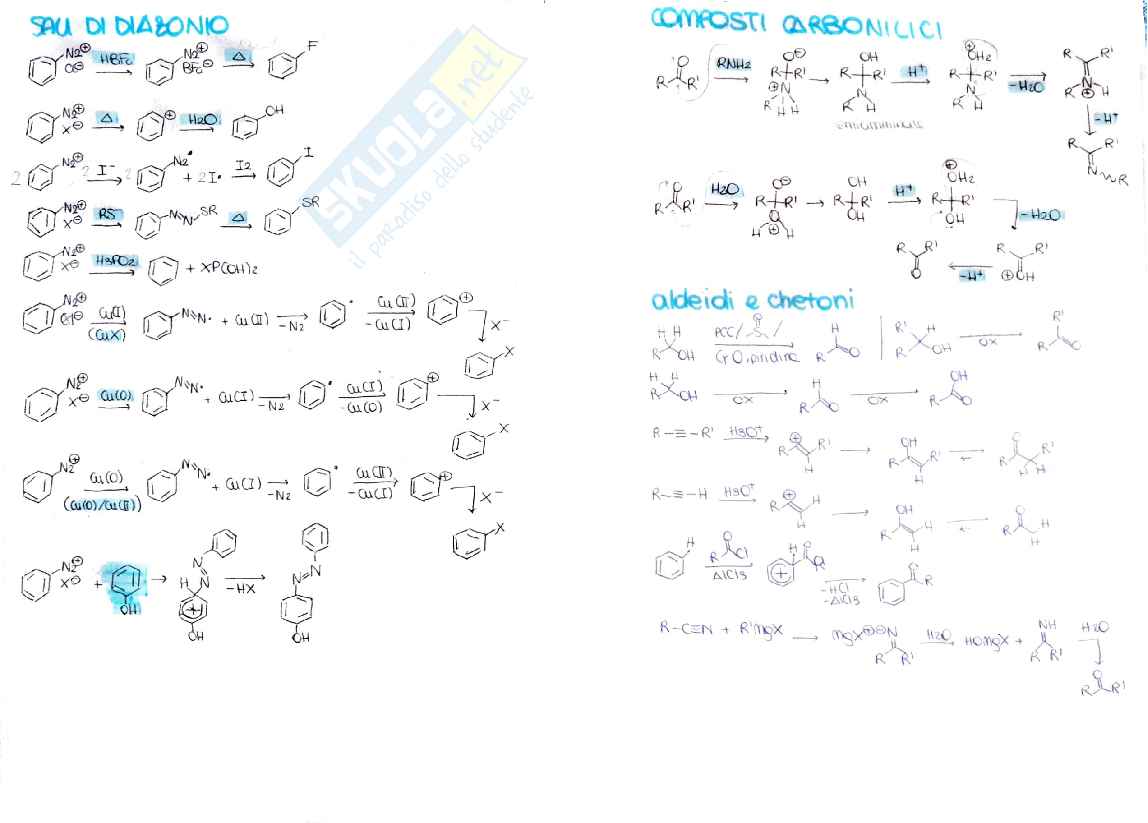 SALI DI DIAZONIO
N2⊕ Cl⊖ HBF4 N2⊕ BF4⊖ Δ F
N2⊕ X⊖ Δ ⊕ H2O OH
2 N2⊕ 2 I⁻ 2 N2• + 2I• I2 I
N2⊕ X⊖ RS⁻ N=N SR Δ SR
N2⊕ X⊖ H3PO2 + XP(OH)2
N2⊕ Cl⊖ Cu(I) (CuX) N=N• + Cu(II) -N2 • Cu(II) -Cu(I) ⊕ X⁻
X
N2⊕ X⊖ Cu(0) N=N• + Cu(I) -N2 • Cu(I) -Cu(0) ⊕ X⁻
X
N2⊕ Cu(0) (Cu(0)/Cu(II)) N=N• + Cu(I) -N2 • Cu(II) -Cu(I) ⊕ X⁻
X
N2⊕ X⊖ + OH H N=N + OH -HX N=N OH
SKUOLA.net
il paradiso dello studente
COMPOSTI CARBONILICI
O R R' RNH2 O⊖ R R' ⊕N R H H OH R R' N R H H⁺ ⊕OH2 R R' N R H -H2O R R' N R H ⊕
emiamminale
-H⁺
R R' N R
O R R' H2O O⊖ R R' O H ⊕ H OH R R' OH H⁺ ⊕OH2 R R' OH -H2O
R R' O -H⁺ R R' ⊕OH
aldeidi e chetoni
H H R OH PCC/ O S / CrO3 piridina H R O R' H R OH OX R' R O
H H R OH OX H R O OX OH R O
R-≡-R' H3O⁺ ⊕ R R' H OH R R' H O R R' H H
R-≡-H H3O⁺ ⊕ R H H OH R H H O R H H
H O R Cl AlCl3 H O R + -HCl -AlCl3 O R
R-C≡N + R'MgX MgX⊕ ⊖N R R' H2O HOMgX + NH R R' H2O
O R R'